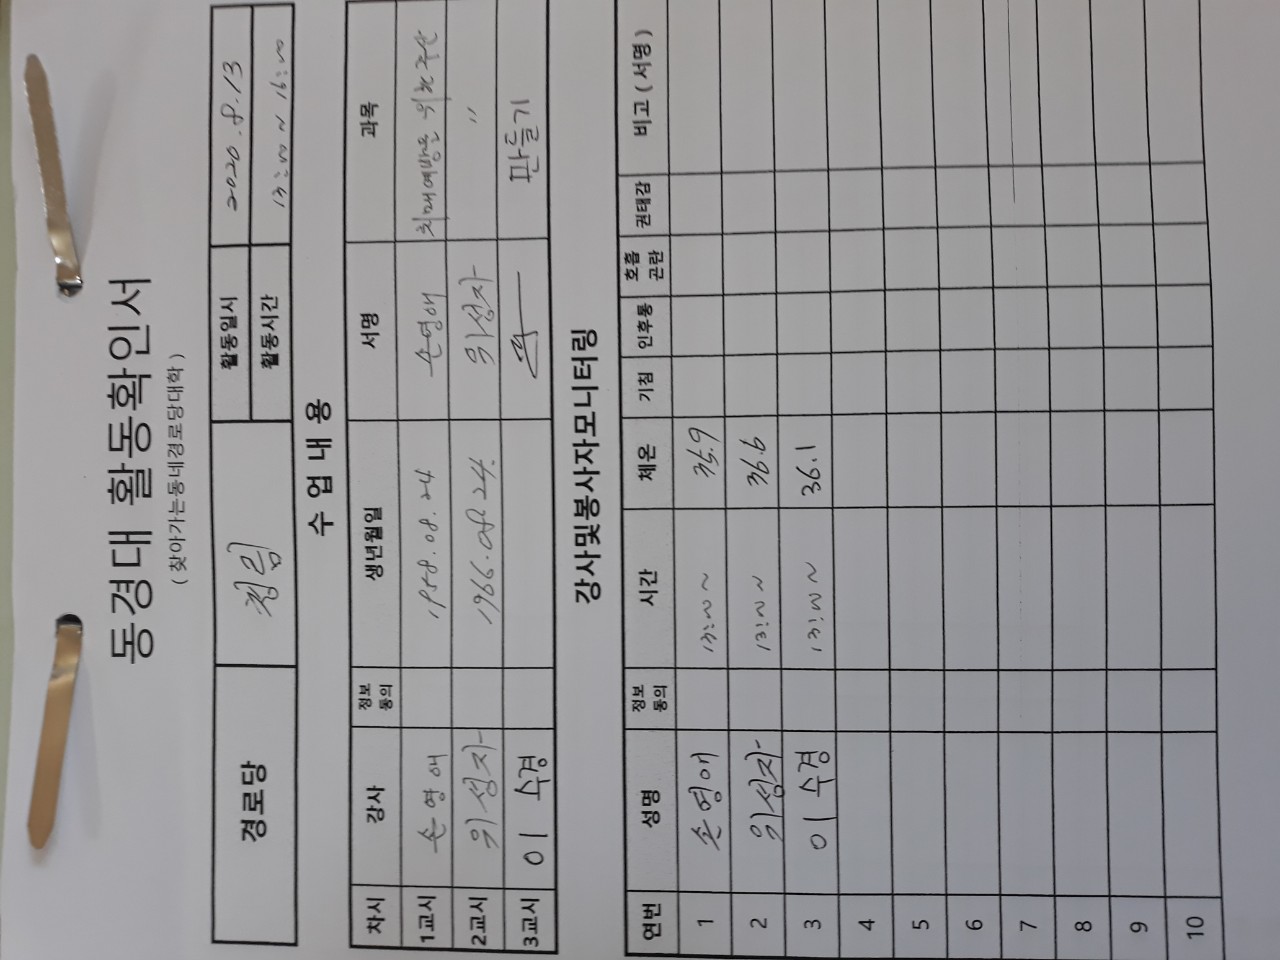 동경대 활동확인서
( 찾아가는동네경로당대학 )
경로당 청림 활동일시 2020.8.13
활동시간 13:00 ~ 16:00
수 업 내 용
차시 강사 정보동의 생년월일 서명 과목
1교시 손영애 1958.08.24 손영애 치매예방을 위한
2교시 위성자 1966.08.24. 위성자 "
3교시 이수경 만들기
강사및봉사자모니터링
연번 성명 정보동의 시간 체온 기침 인후통 호흡곤란 권태감 비고 ( 서명 )
1 손영애 13:00~ 35.9
2 위성자 13:00~ 36.6
3 이수경 13:00~ 36.1
4
5
6
7
8
9
10